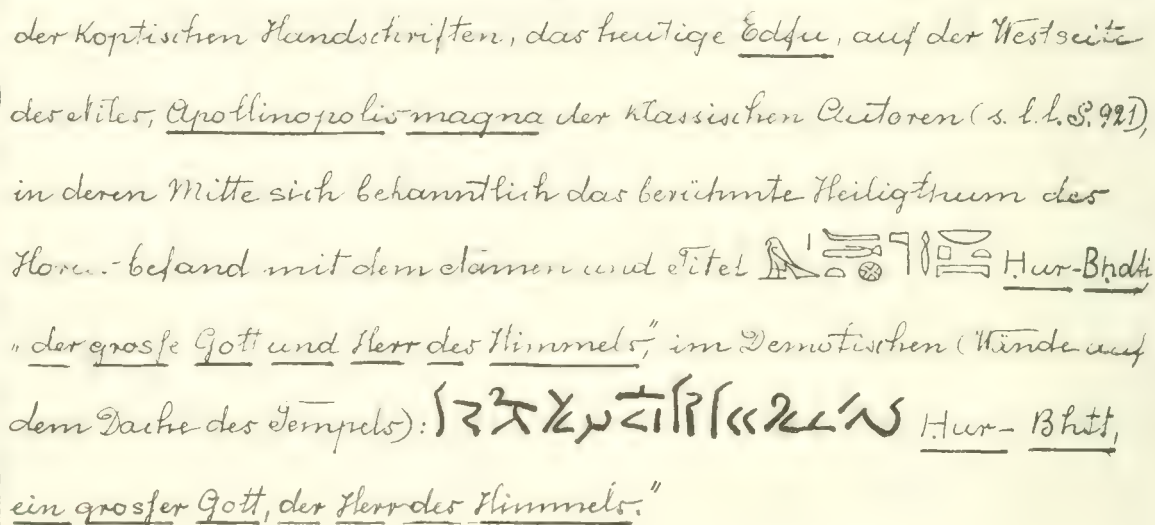 der Koptischen Handschriften, das heutige Edfu, auf der Westseite
des Niles, Apollinopolis magna der klassischen Autoren (s. l. l. S. 921),
in deren Mitte sich bekanntlich das berühmte Heiligthum des
befand mit dem Namen und Titel Hur-Bhdti
„der grosse Gott und Herr des Himmels," im Demotischen (Wände auf
dem Dache des Tempels): Hur-Bhtt,
ein grosser Gott, der Herr des Himmels."